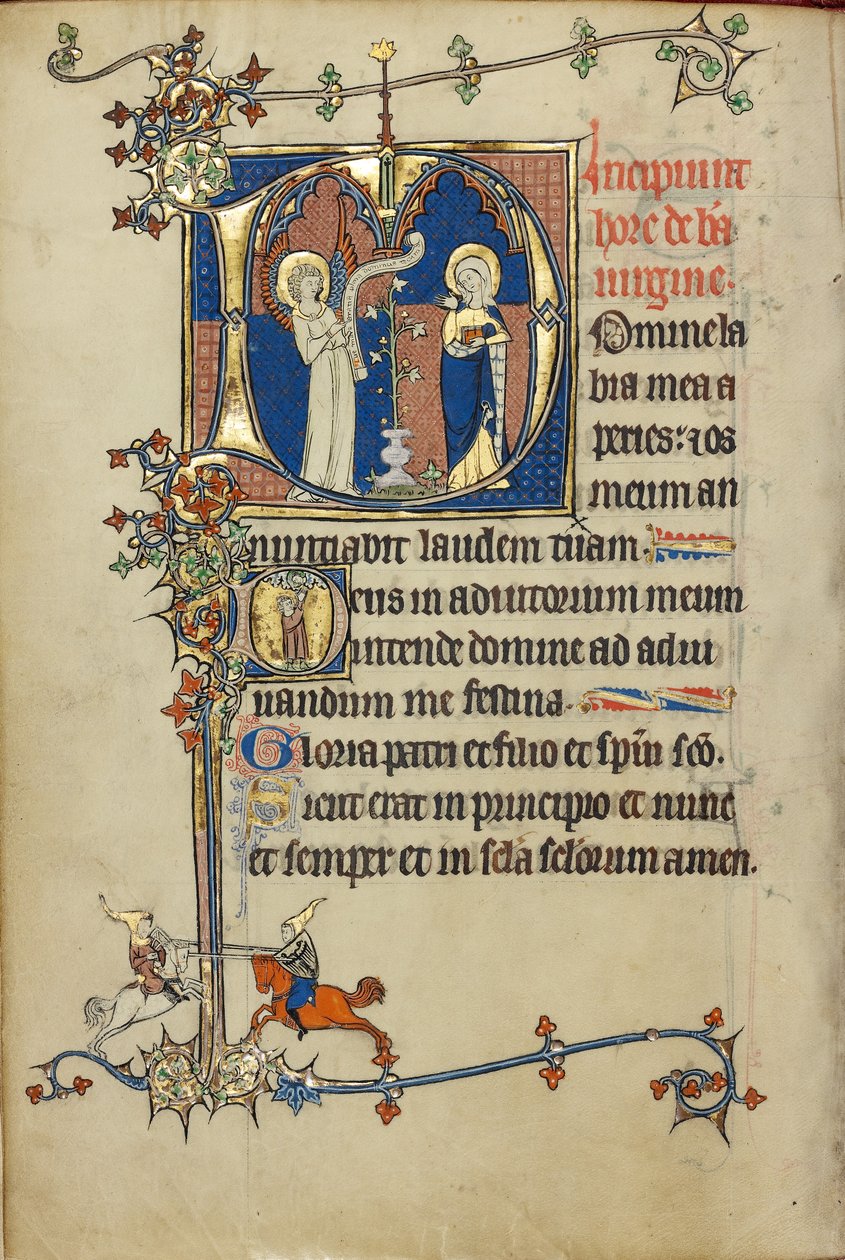 Incipiunt
hore de bā
uirgine.
Domine la
bia mea a
peries: ⁊ os
meum an
nuntiabit laudem tuam.
Deus in adiutorium meum
intende domine ad adiu
uandum me festina.
Gloria patri et filio et spīu scō.
Sicut erat in principio et nunc
et semper et in scła scłorum amen.